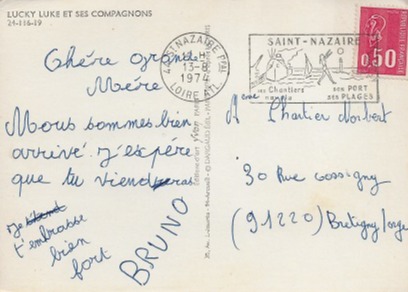 LUCKY LUKE ET SES COMPAGNONS
24-116-19
Chére grande
Mére
Nous sommes bien
arrivé. J'espére
que tu viendras
Je
t'embrasse
bien
fort
BRUNO
44 ST NAZAIRE PPAL
13-8
1974
LOIRE ATL.
SAINT-NAZAIRE
ses Chantiers
son PORT
ses PLAGES
0,50
Chartier Norbert
30 Rue Cossigny
(91220) Bretigny/orge